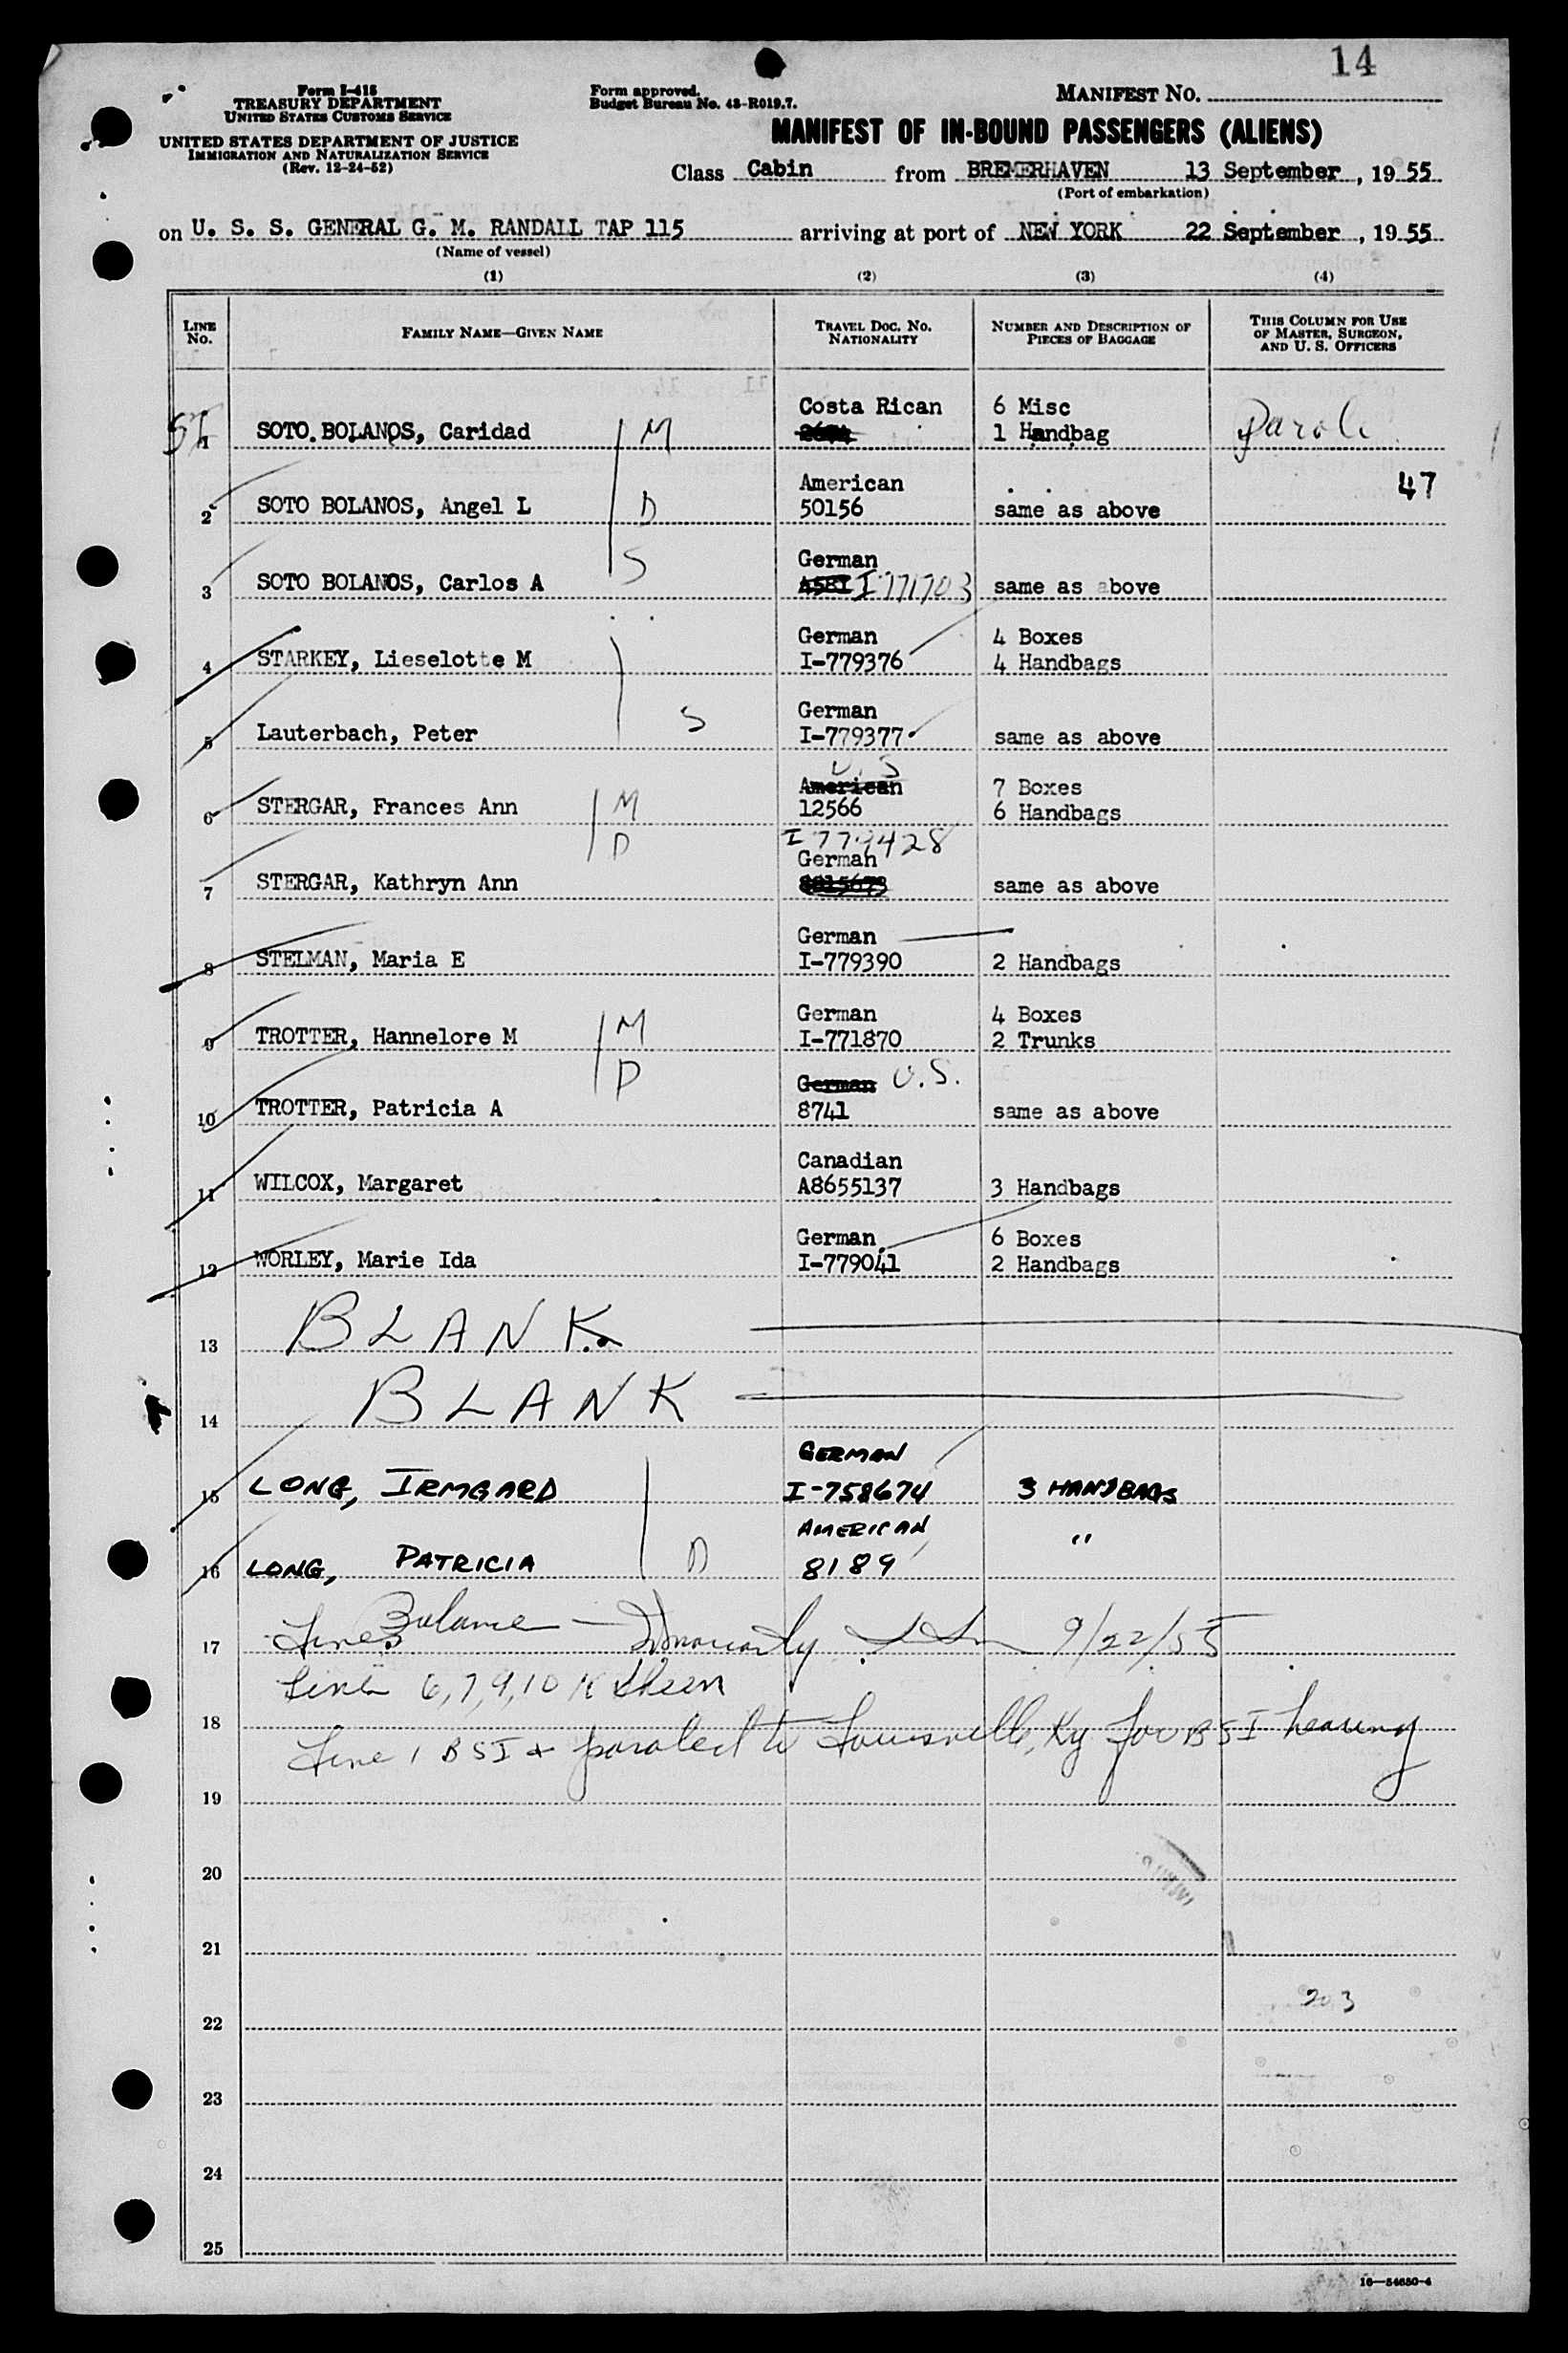 14
Form I-418
TREASURY DEPARTMENT
UNITED STATES CUSTOMS SERVICE
UNITED STATES DEPARTMENT OF JUSTICE
IMMIGRATION AND NATURALIZATION SERVICE
(Rev. 12-24-52)
Form approved.
Budget Bureau No. 43-R019.7.
MANIFEST NO.
MANIFEST OF IN-BOUND PASSENGERS (ALIENS)
Class Cabin from BREMERHAVEN 13 September, 19 55
(Port of embarkation)
on U. S. S. GENERAL G. M. RANDALL TAP 115 arriving at port of NEW YORK 22 September, 19 55
(Name of vessel)
(1) (2) (3) (4)
LINE NO. FAMILY NAME—GIVEN NAME TRAVEL DOC. NO. NATIONALITY NUMBER AND DESCRIPTION OF PIECES OF BAGGAGE THIS COLUMN FOR USE OF MASTER, SURGEON, AND U. S. OFFICERS
Costa Rican 6 Misc
1 SOTO BOLANOS, Caridad M 1 Handbag Parole
American 47
2 SOTO BOLANOS, Angel L D 50156 same as above
German
3 SOTO BOLANOS, Carlos A S I 771703 same as above
German 4 Boxes
4 STARKEY, Lieselotte M I-779376 4 Handbags
German
5 Lauterbach, Peter S I-779377 same as above
U.S
American 7 Boxes
6 STERGAR, Frances Ann M 12566 6 Handbags
I 779428
German
7 STERGAR, Kathryn Ann D same as above
German
8 STELMAN, Maria E I-779390 2 Handbags
German 4 Boxes
9 TROTTER, Hannelore M M I-771870 2 Trunks
German U.S.
10 TROTTER, Patricia A D 8741 same as above
Canadian
11 WILCOX, Margaret A8655137 3 Handbags
German 6 Boxes
12 WORLEY, Marie Ida I-779041 2 Handbags
13 BLANK
14 BLANK
GERMAN
15 LONG, IRMGARD I-758674 3 HANDBAGS
AMERICAN "
16 LONG, PATRICIA D 8189
Balance
17 Lines 9/22/55
Line 6, 7, 9, 10
18
Line 1 BSI & paroled to Louisville, Ky for BSI hearing
19
20
21
203
22
23
24
25
16—54650-4